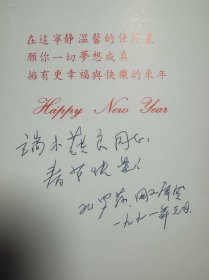 在這寧靜溫馨的佳節裏
願你一切夢想成真
擁有更幸福與快樂的來年
Happy New Year
端木蕻良同志:
春节快乐!
孔罗荪、周玉屏贺
一九九一年元月